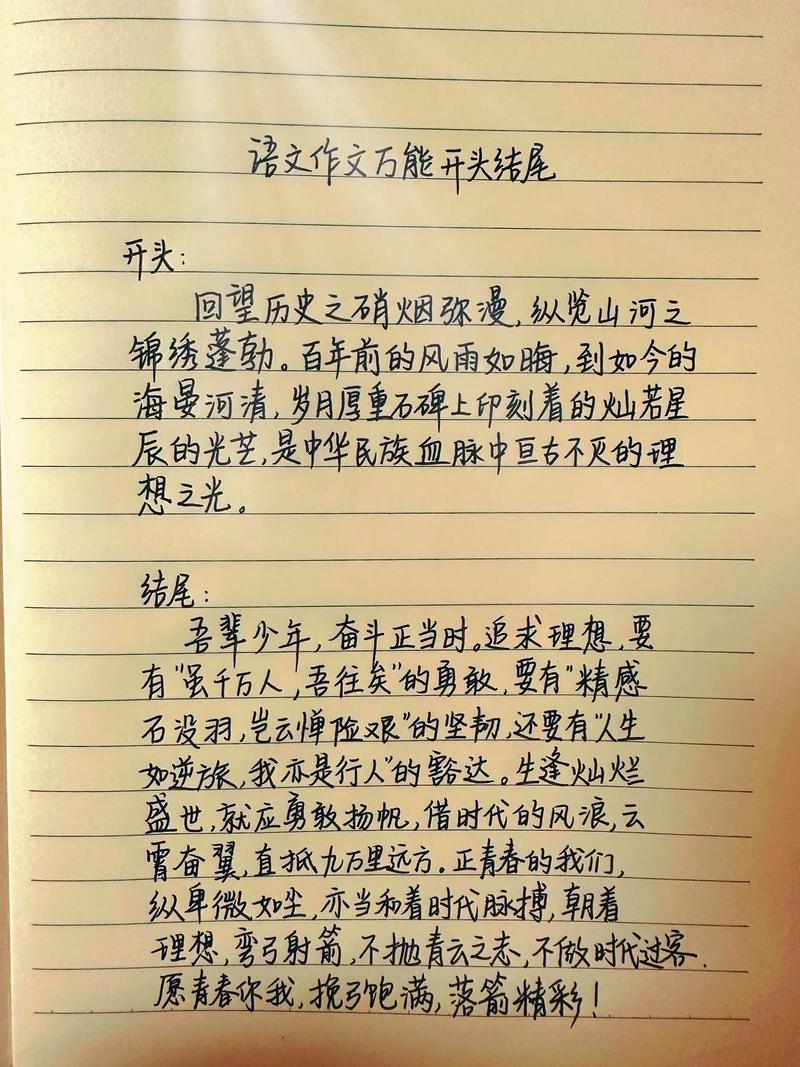 语文作文万能开头结尾
开头:
回望历史之硝烟弥漫,纵览山河之
锦绣蓬勃。百年前的风雨如晦,到如今的
海晏河清,岁月厚重石碑上印刻着的灿若星
辰的光芒,是中华民族血脉中亘古不灭的理
想之光。
结尾:
吾辈少年,奋斗正当时。追求理想,要
有"虽千万人,吾往矣"的勇敢,要有"精感
石没羽,岂云惮险艰"的坚韧,还要有"人生
如逆旅,我亦是行人"的豁达。生逢灿烂
盛世,就应勇敢扬帆,借时代的风浪,云
霄奋翼,直抵九万里远方。正青春的我们,
纵卑微如尘,亦当和着时代脉搏,朝着
理想,弯弓射箭,不抛青云之志,不做时代过客.
愿青春你我,挽弓饱满,落箭精彩!